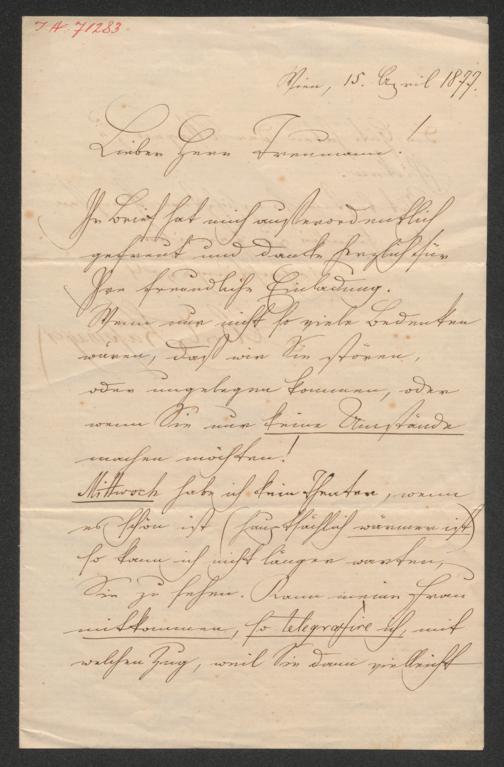 I.N. 71283.
Wien, 15. April 1877.
Lieber Herr Treumann!
Ihr Brief hat mich außerordentlich
gefreut und danke herzlich für
Ihre freundliche Einladung.
Wenn nur nicht so viele Bedenken
waren, daß wir Sie stören,
oder ungelegen kommen, oder
wenn Sie nur keine Umstände
machen möchten!
Mittwoch habe ich kein Theater, wenn
es schön ist (hauptsächlich wärmer ist)
so kann ich nicht länger warten,
Sie zu sehen. Kann meine Frau
mitkommen, so telegrafire ich, mit
welchen Zug, weil Sie dann vielleicht